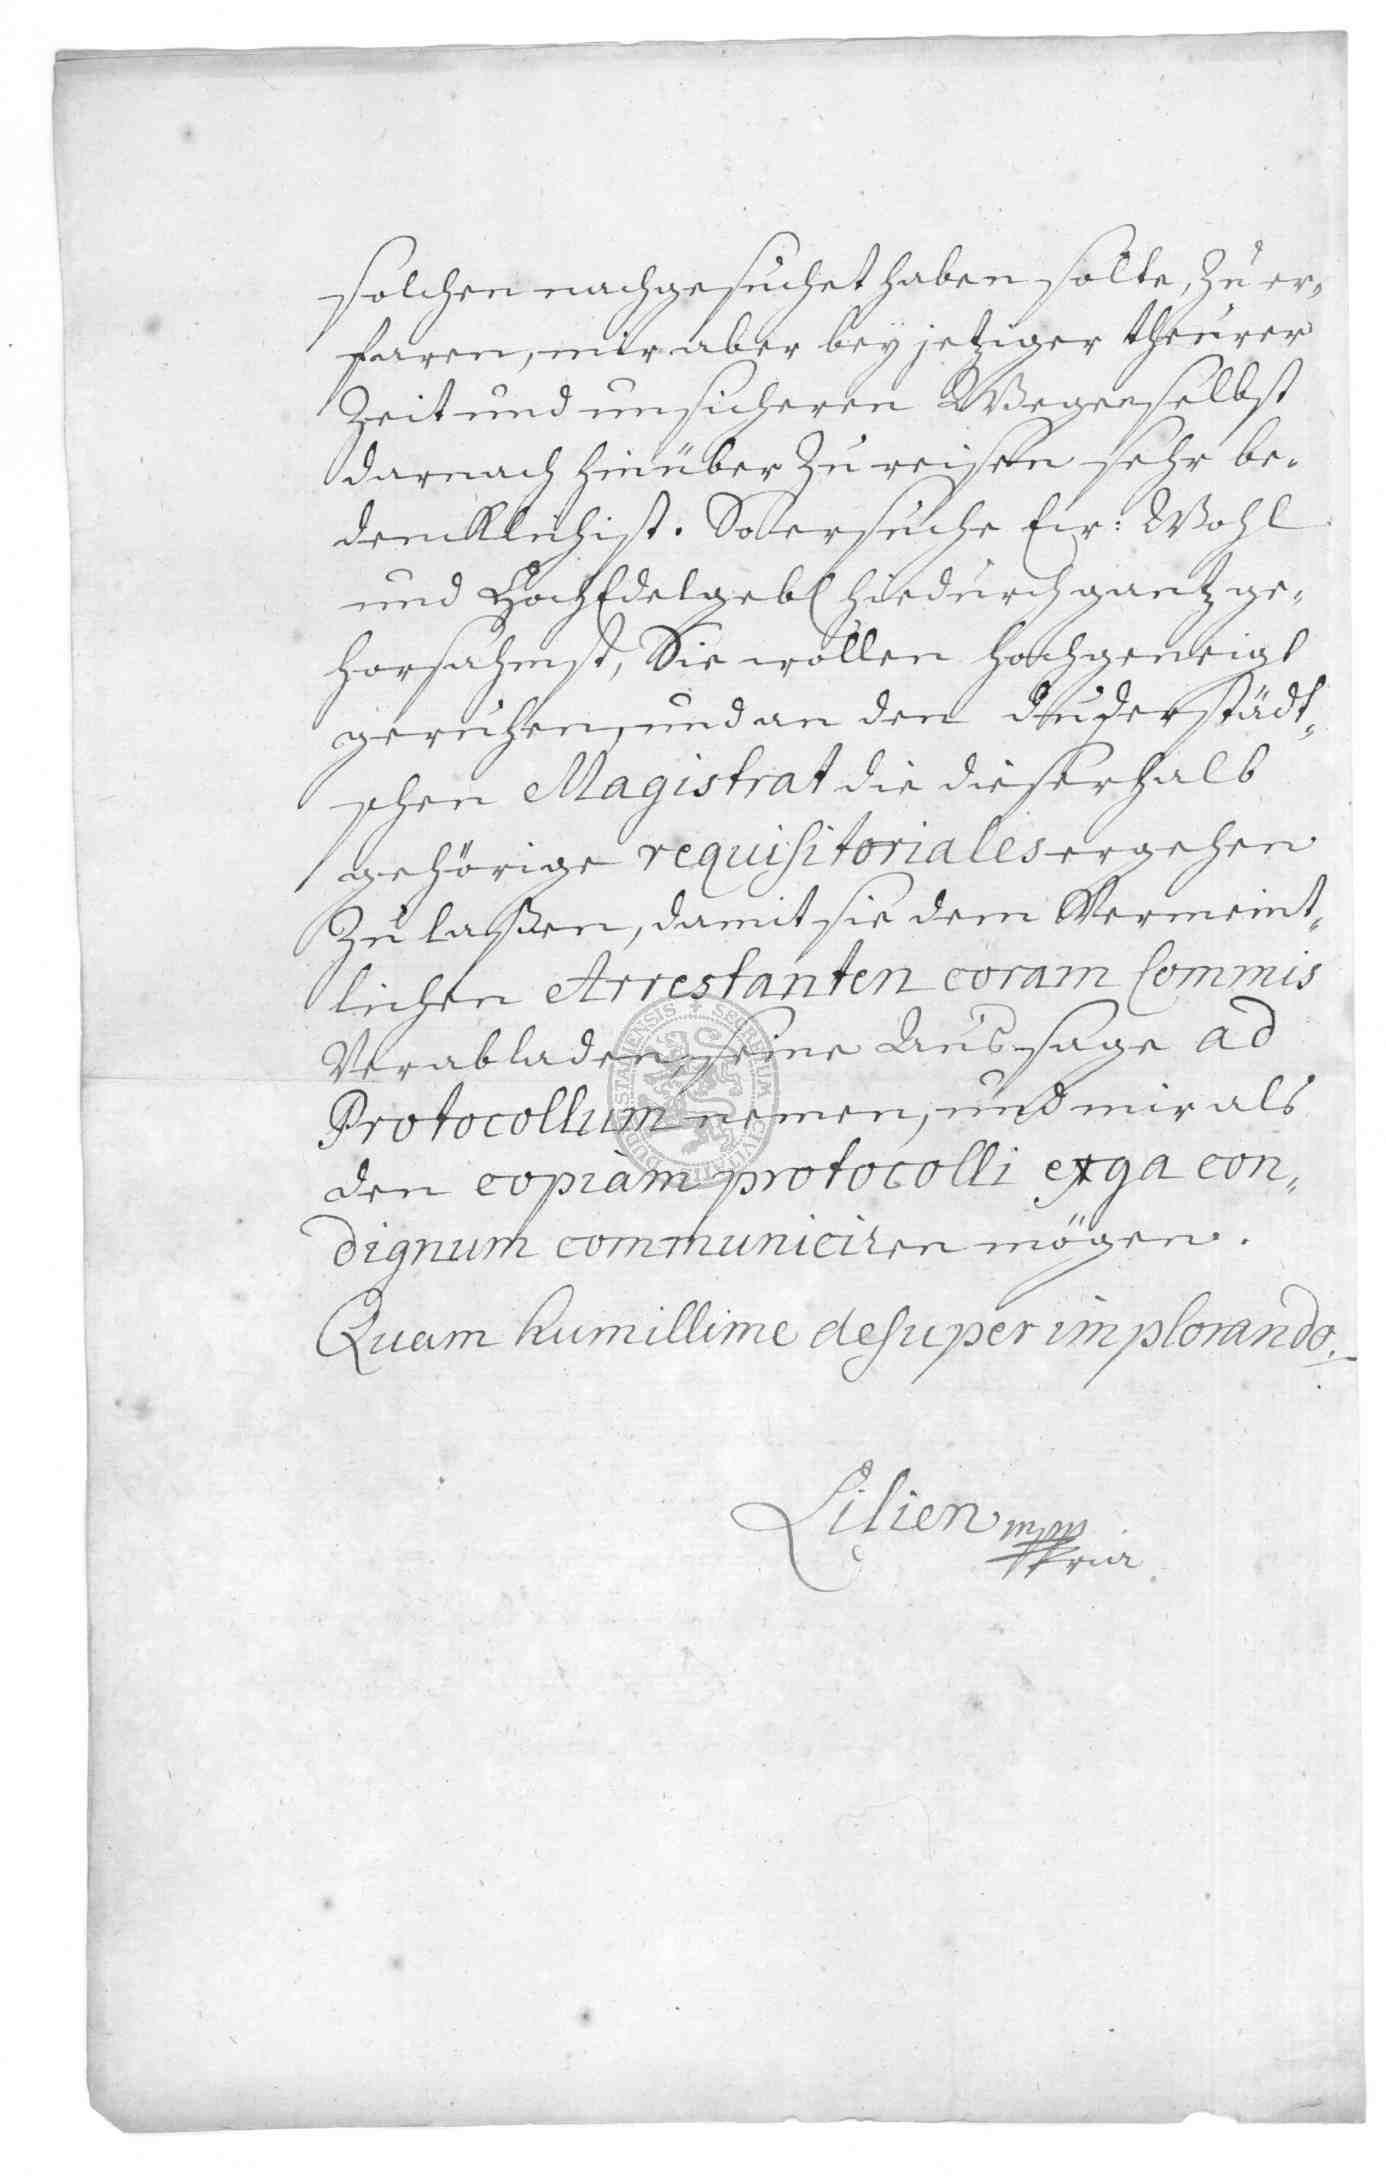 solchen nachgesuchet haben solte, zu er„
faren, mir aber bey jetziger theurer
Zeit und unsicheren Wegen selbst
darnach hinüber zu reisen sehr be„
dencklich ist. So ersuche Eür: Wohl
und HochEdelgebl hiedurch gantz ge„
horsahmst, Sie wollen hochgeneigt
geruhen, und an den duderstädt„
schen Magistrat die dieserhalb
gehörige requisitoriales ergehen
zu laßen, damit sie dem Vermeint„
lichen Arrestanten coram Commis
Verabladen, seine Aussage ad
Protocollum nemen, und mir als
den copiam protocolli erga con„
dignum communiciren mögen.
Quam humillime desuper implorando.
Lilien mpp
pria
SECRETUM CIVITATIS DUDERSTADENSIS